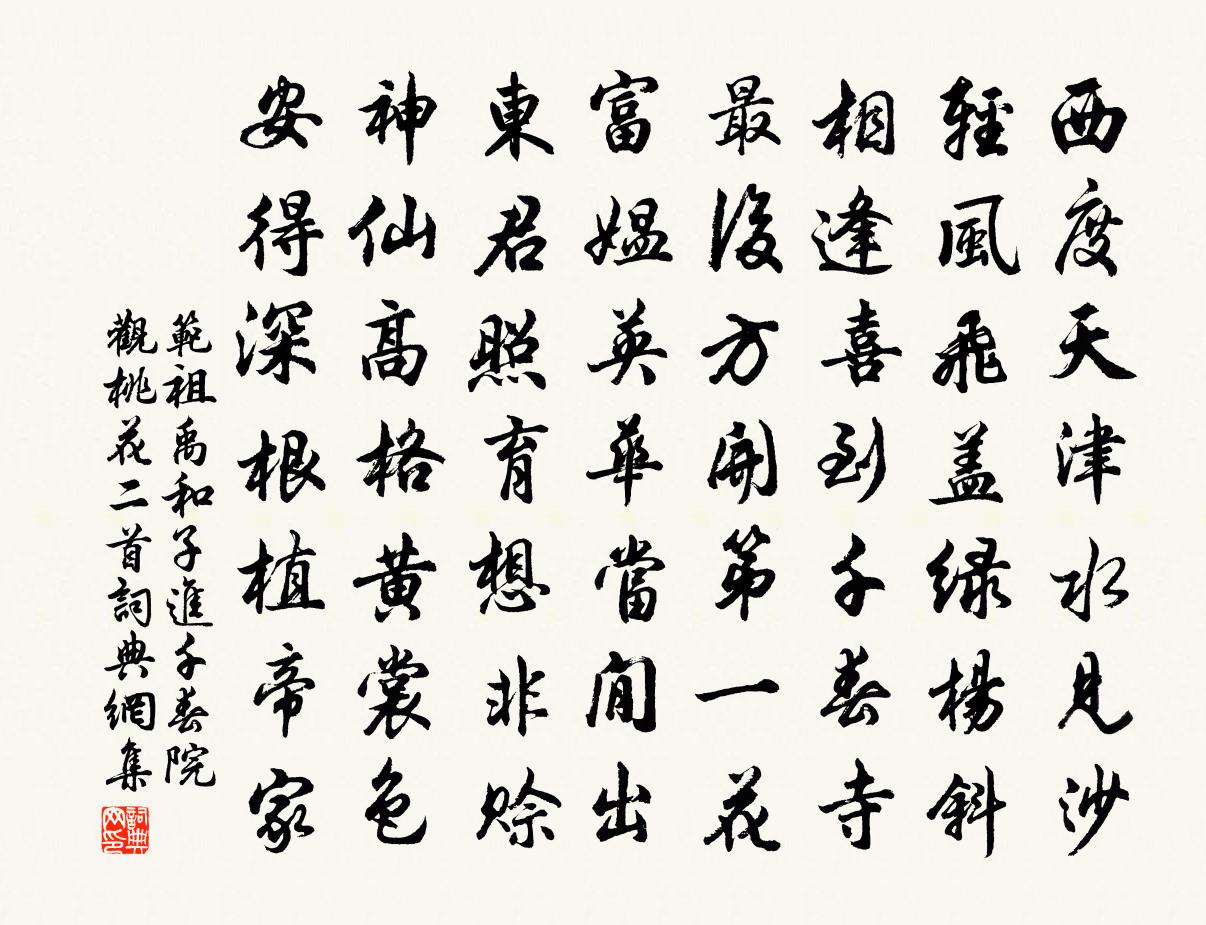 西度天津水見沙
輕風飛盖绿楊斜
相逢喜到千春寺
最後方開第一花
富媼英華當閒出
東君照育想非賒
神仙高格黄裳色
安得深根植帝家
範祖禹和子進千春院
觀桃花二首詞典網集
詞典网印